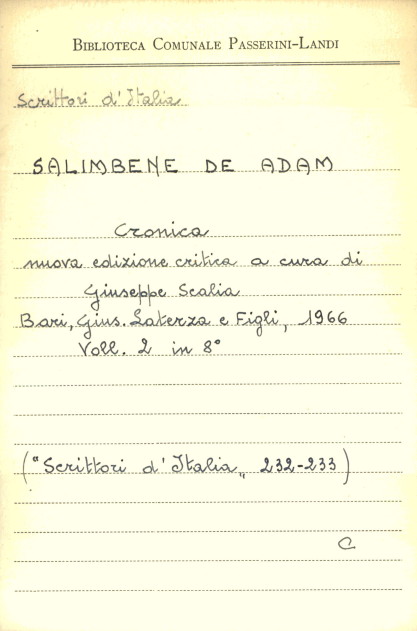 BIBLIOTECA COMUNALE PASSERINI-LANDI
Scrittori d'Italia
SALIMBENE DE ADAM
Cronica
nuova edizione critica a cura di
Giuseppe Scalia
Bari, Gius. Laterza e Figli, 1966
Voll. 2 in 8°
("Scrittori d'Italia„ 232-233)
C